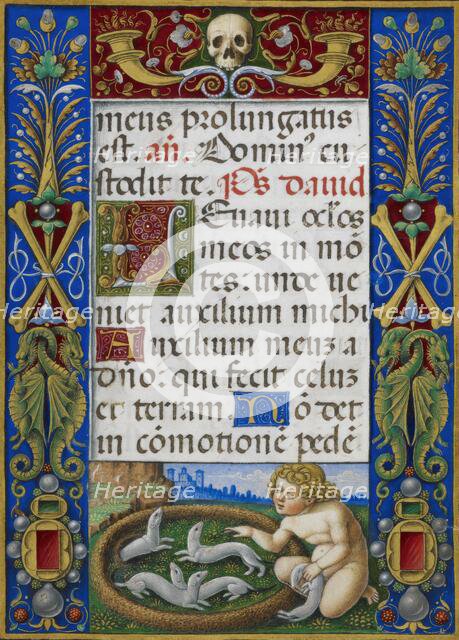 meus prolungatus
est. añ. Domin⁹ cu
stodit te. Ps david
Leuaui oc̃l̃os
meos in mõ
tes: unde ue
niet auxilium michi
Auxilium meuz a
dño: qui fecit celuz
et terram. Nõ det
in cõmotionẽ pedẽ
Heritage Heritage
Heritage Heritage
Heritage Heritage